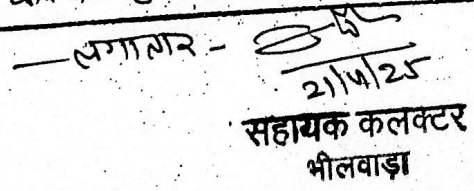 — लगातार -
21/4/25
सहायक कलक्टर
भीलवाड़ा